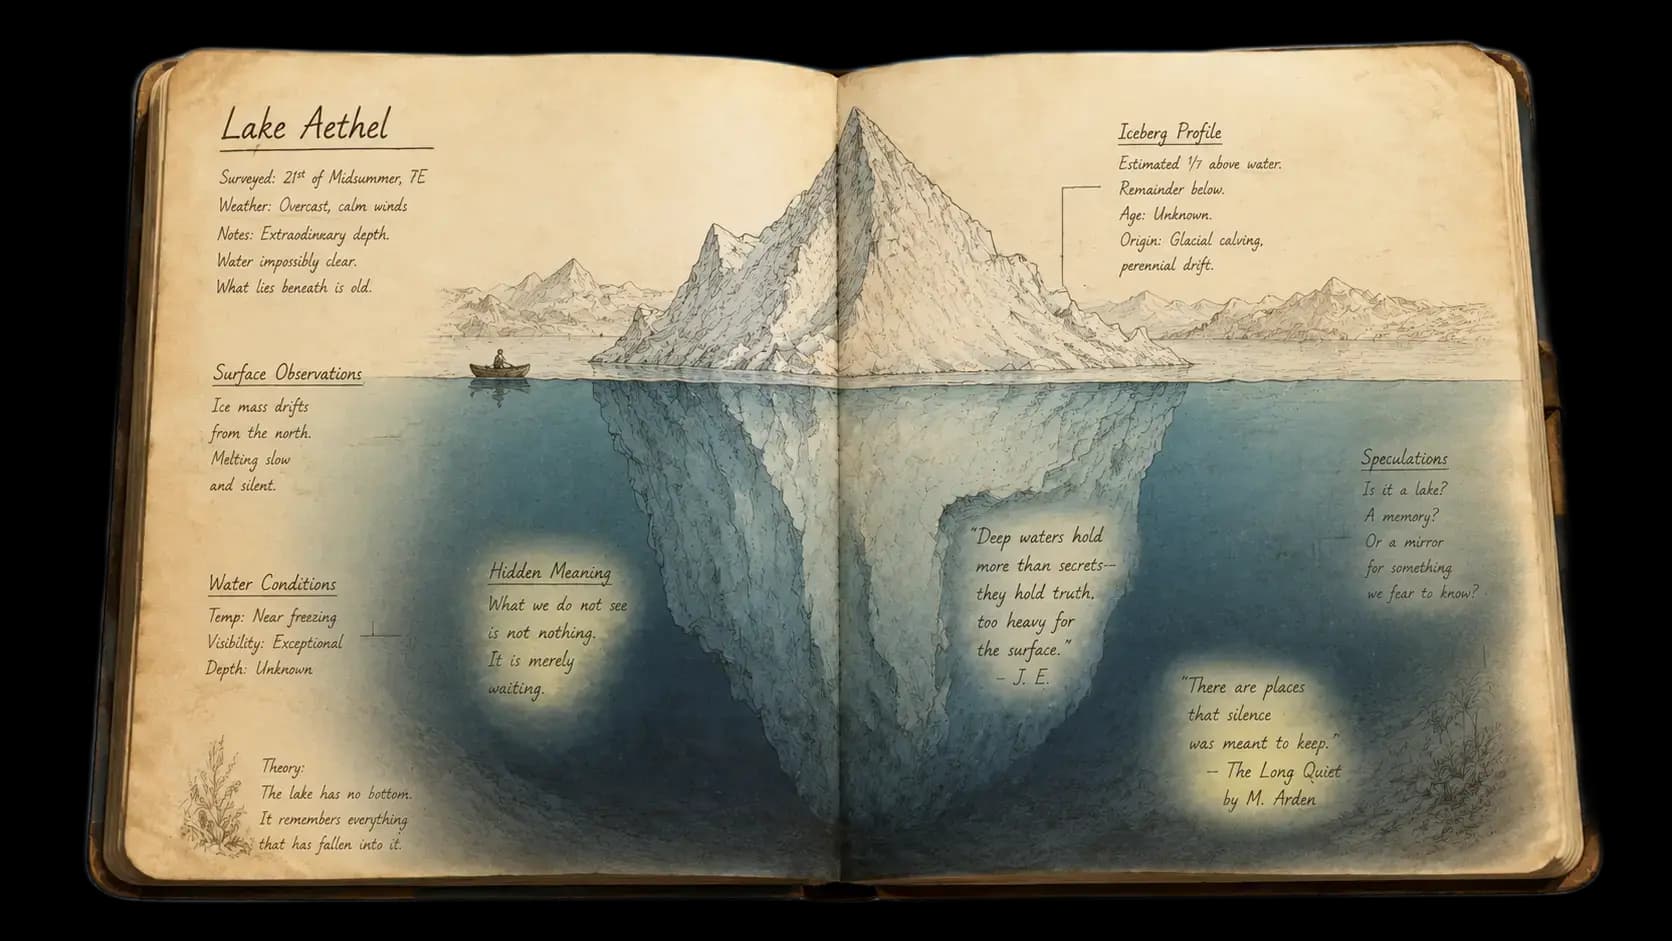 Lake Aethel
Surveyed: 21st of Midsummer, 7E
Weather: Overcast, calm winds
Notes: Extraodinxary depth.
Water impossibly clear.
What lies beneath is old.
Surface Observations
Ice mass drifts
from the north.
Melting slow
and silent.
Water Conditions
Temp: Near freezing
Visibility: Exceptional
Depth: Unknown
Theory:
The lake has no bottom.
It remembers everything
that has fallen into it.
Hidden Meaning
What we do not see
is not nothing.
It is merely
waiting.
Iceberg Profile
Estimated 1/7 above water.
Remainder below.
Age: Unknown.
Origin: Glacial calving,
perennial drift.
"Deep waters hold
more than secrets—
they hold truth,
too heavy for
the surface."
– J. E.
Speculations
Is it a lake?
A memory?
Or a mirror
for something
we fear to know?
"There are places
that silence
was meant to keep."
– The Long Quiet
by M. Arden